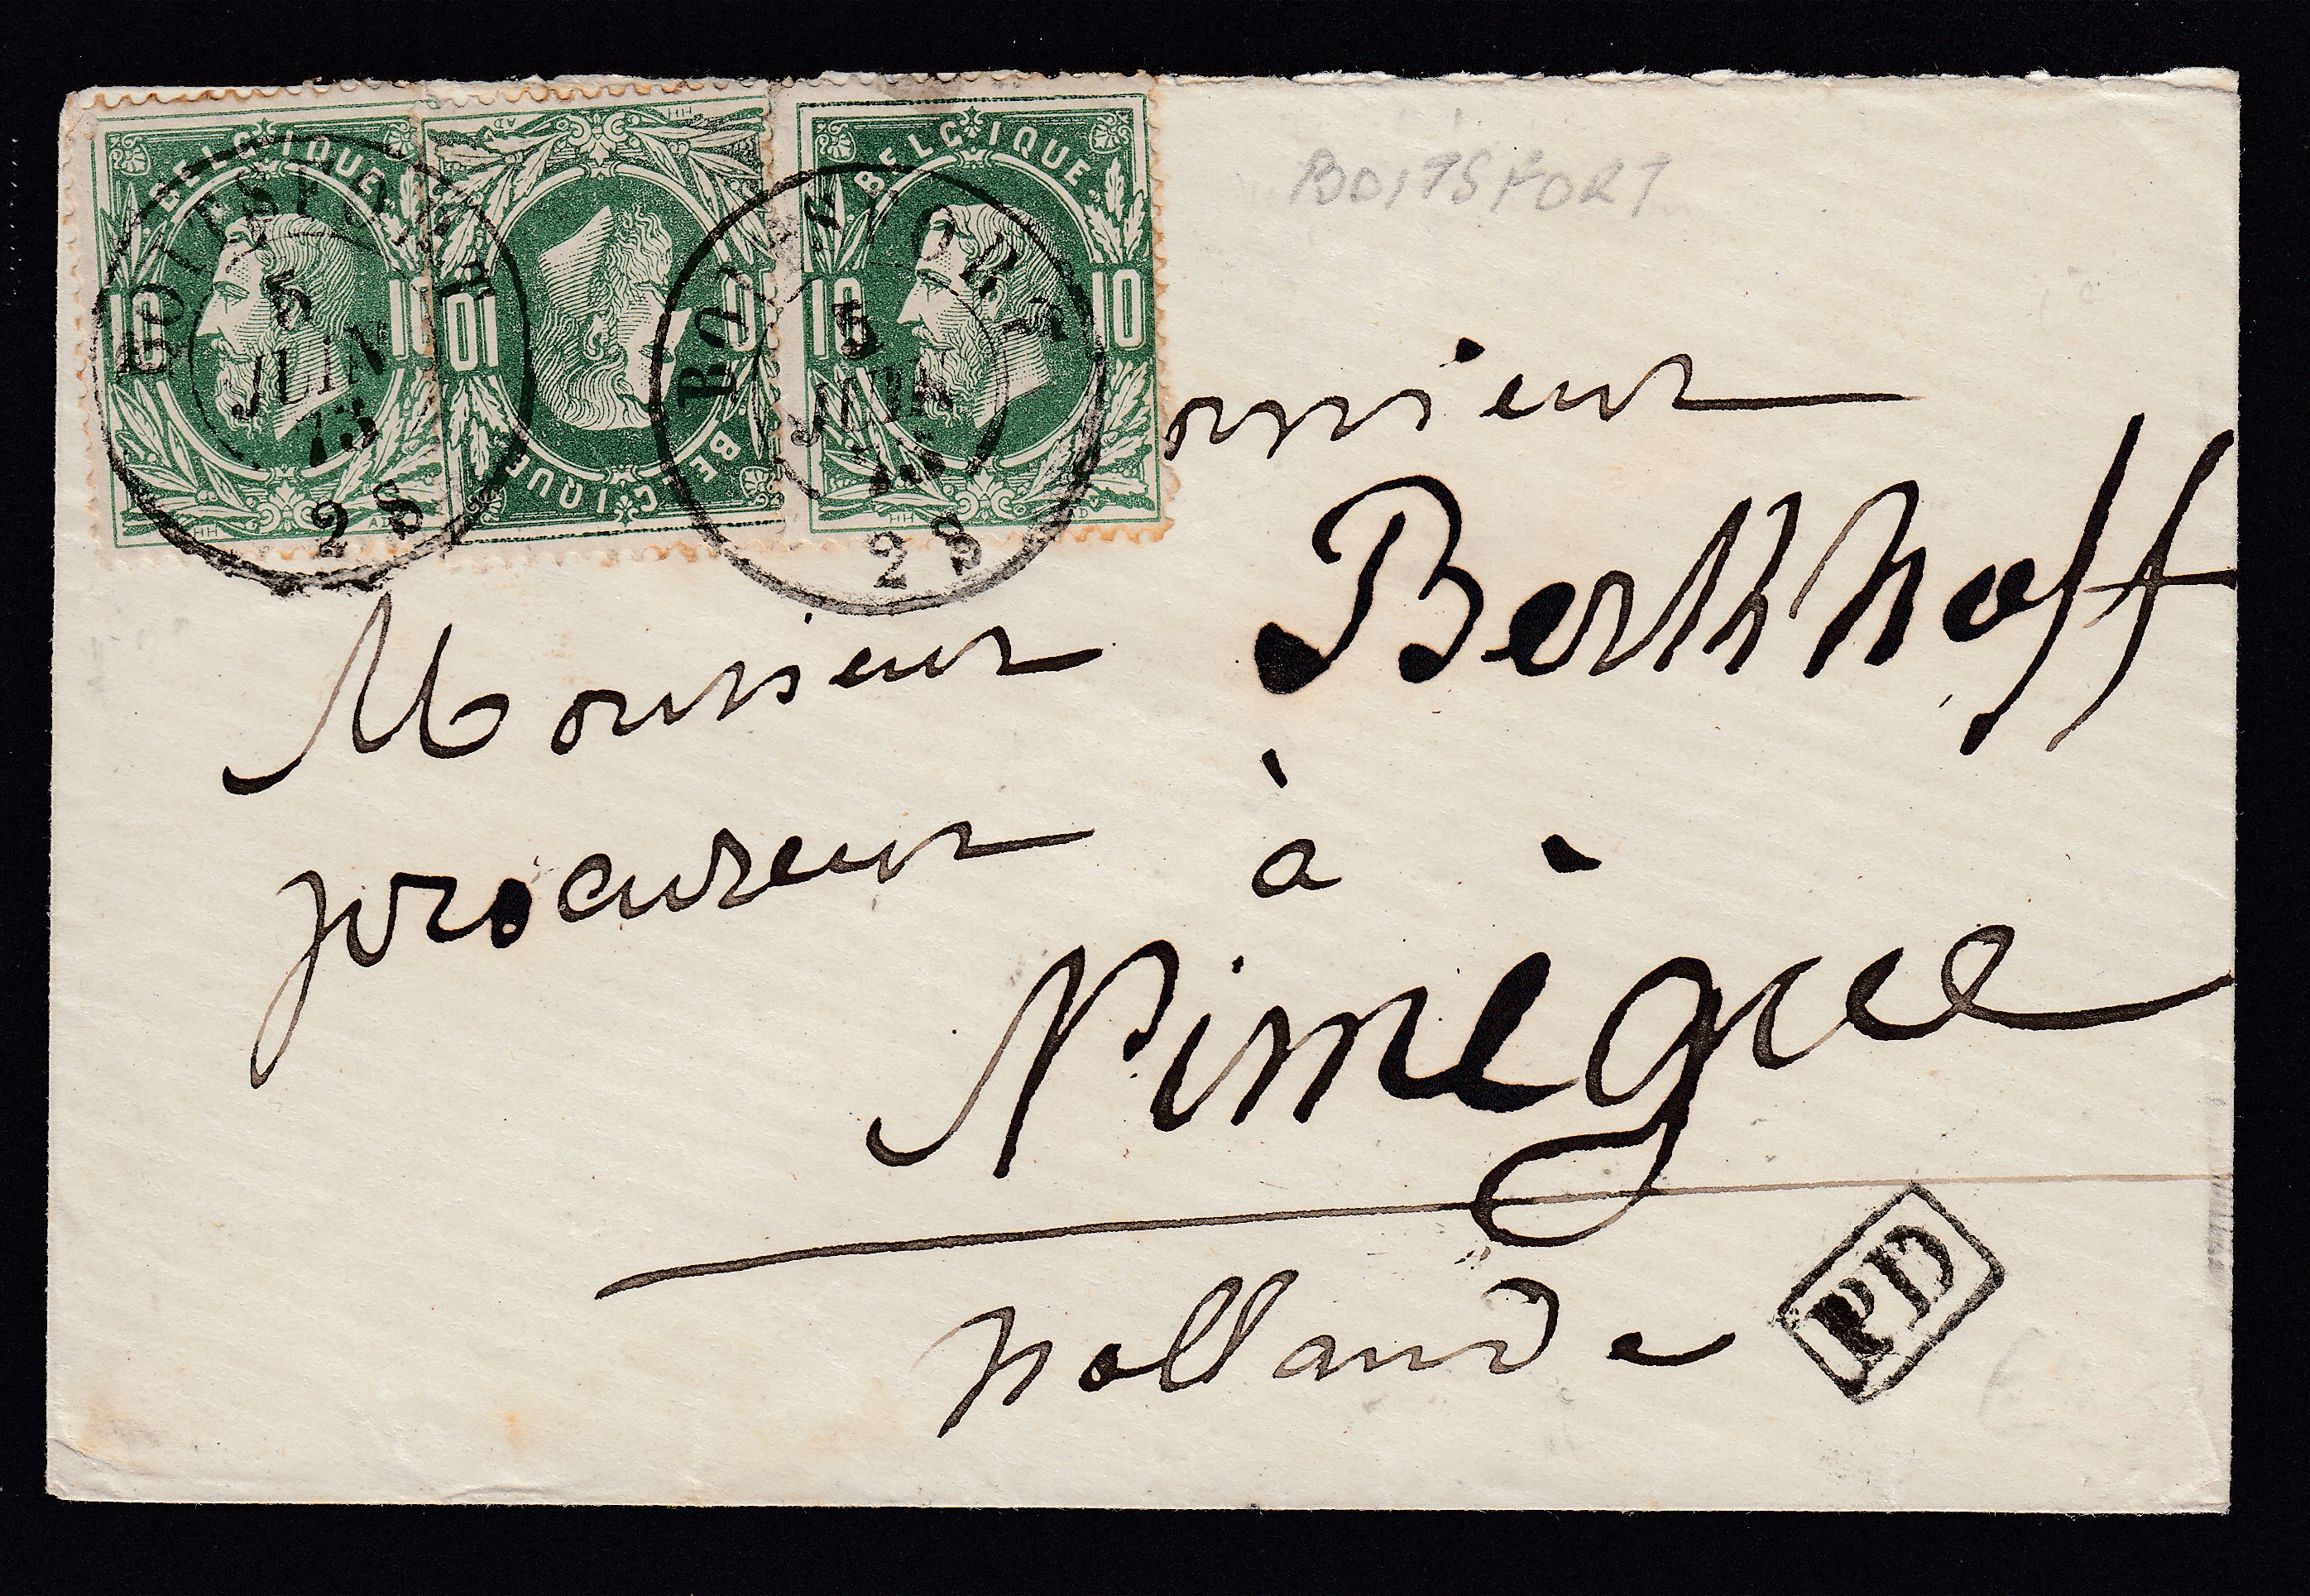 BELGIQUE
10 10
HH AD
BELGIQUE
10 10
HH AD
BELGIQUE
10 10
HH AD
BOITSFORT
5
JUIN
73
2 S
BOITSFORT
5
JUIN
73
2 S
BOITSFORT
onsieur
Monsieur Berthhoff
procureur à
Nimègue
hollande
PD